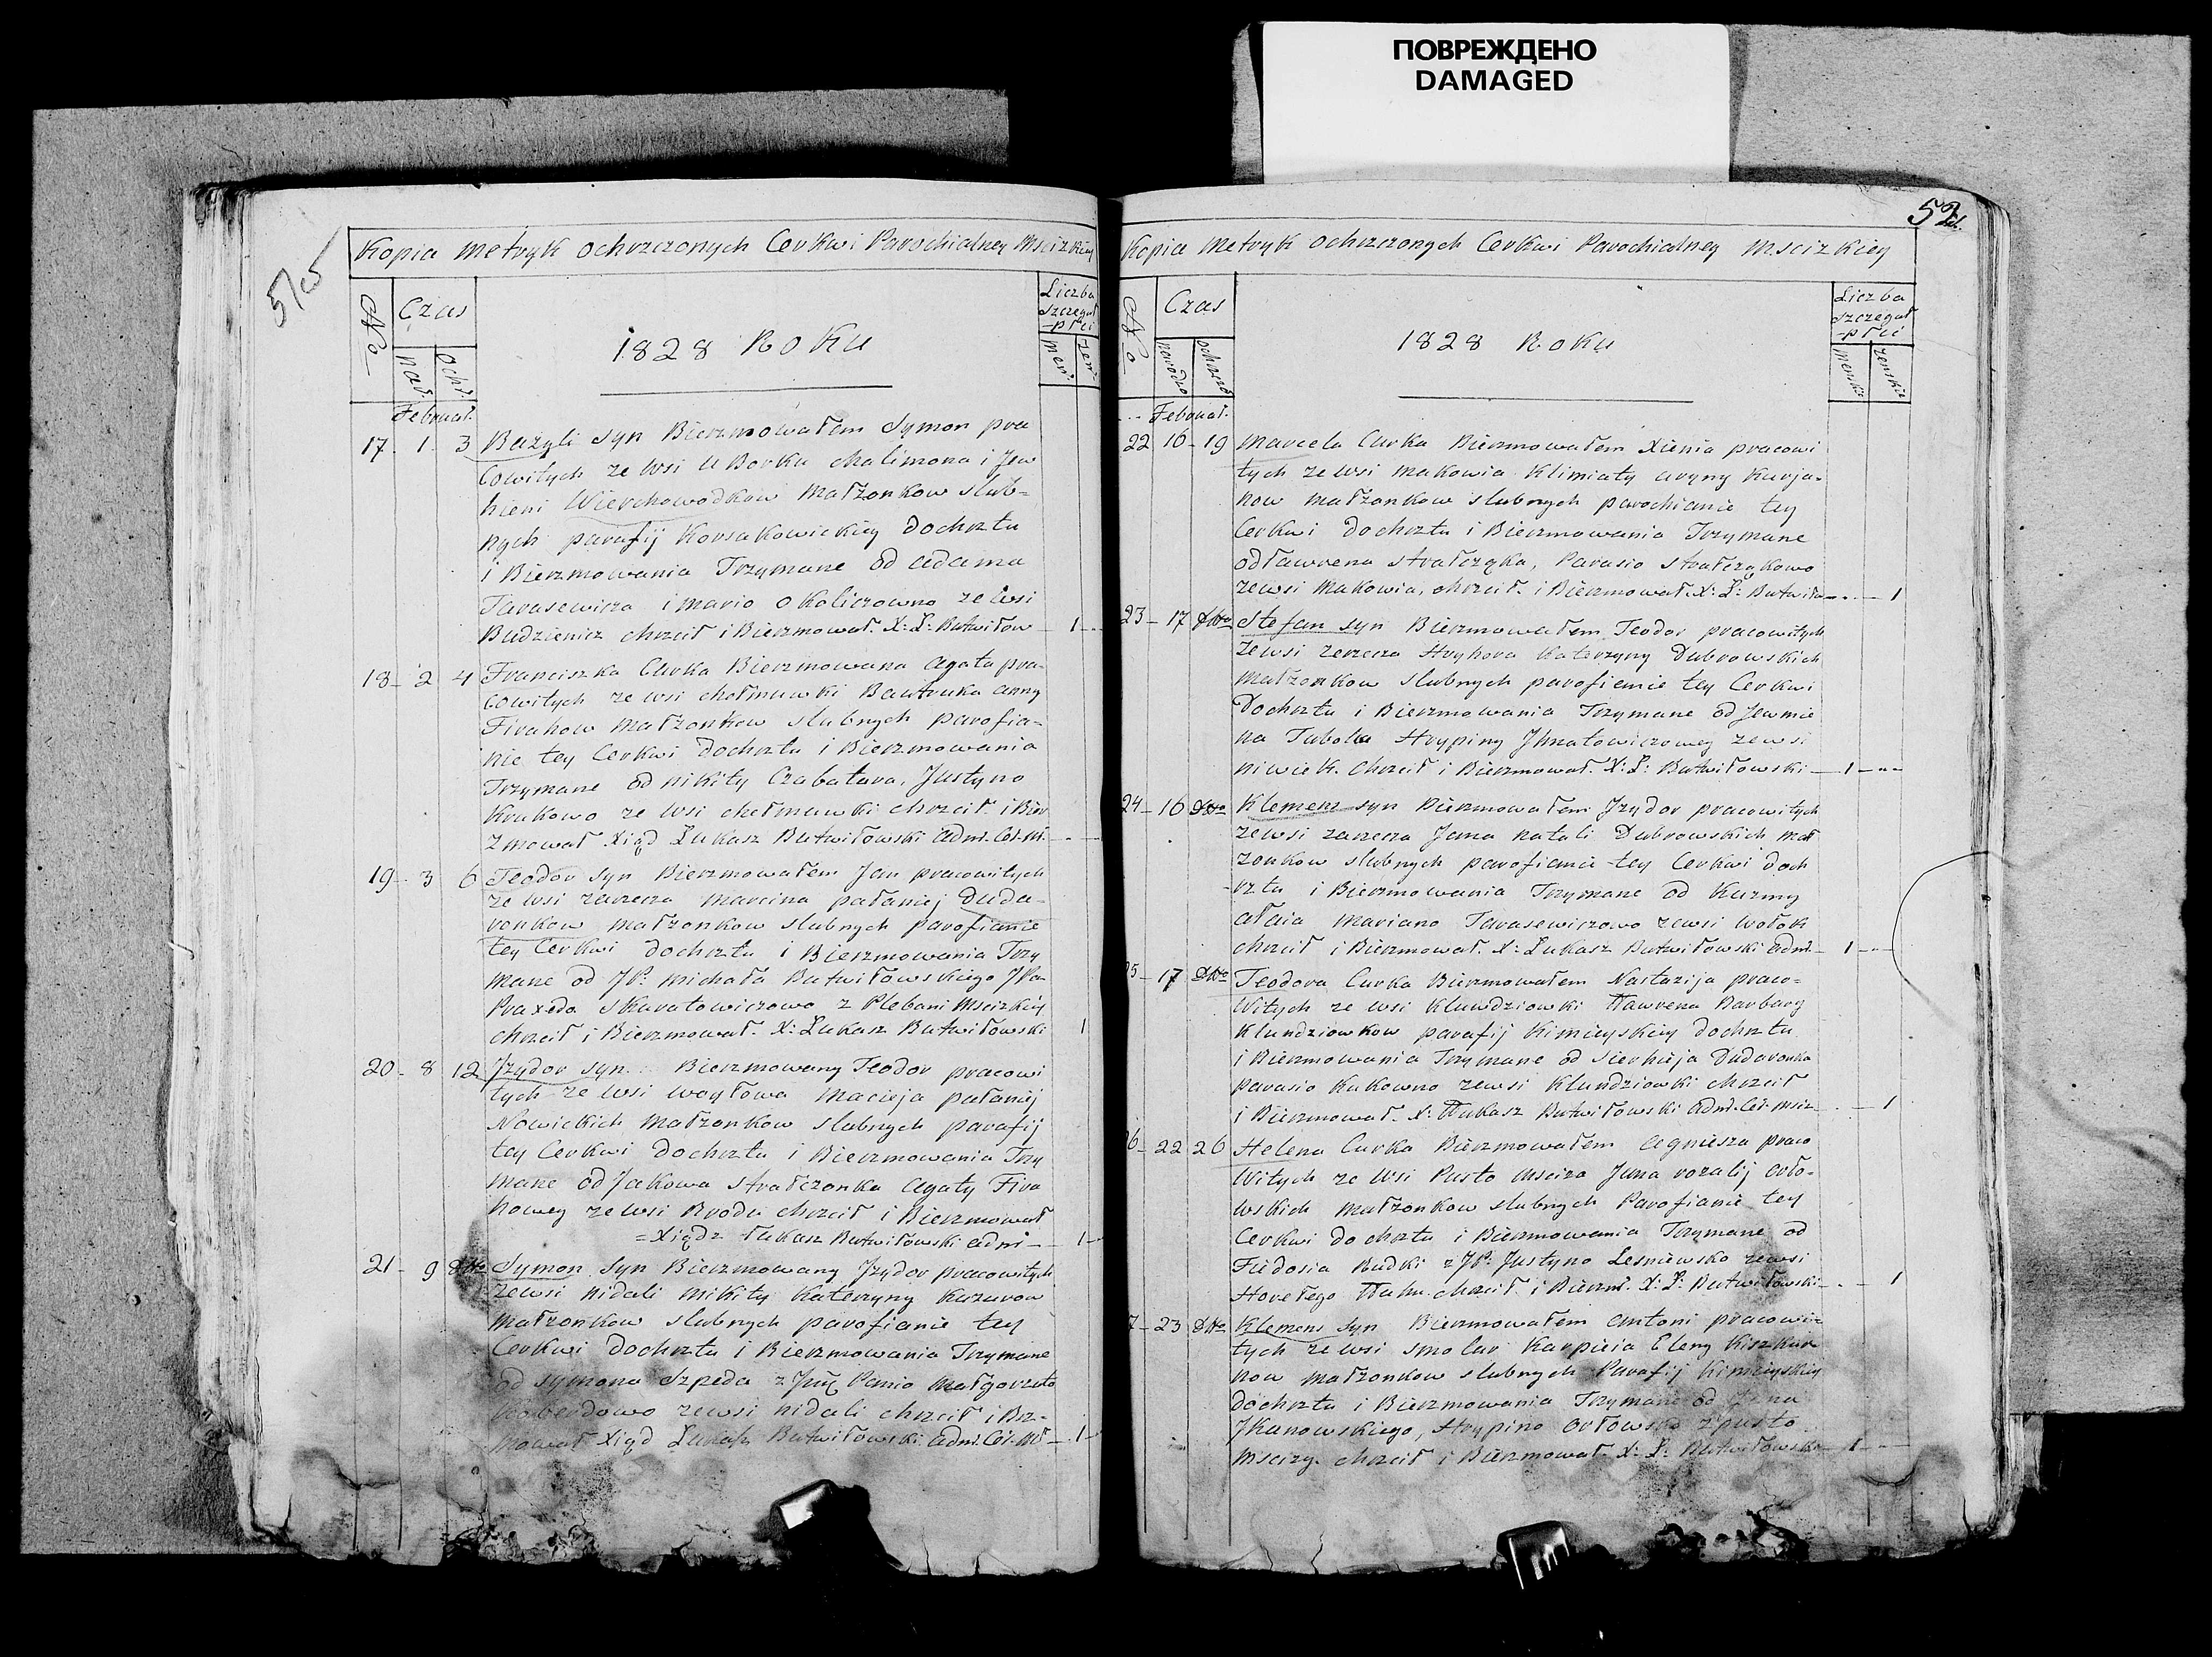 ПОВРЕЖДЕНО
DAMAGED
Kopia Metryk ochrzczonych Cerkwi Parochialney Mscizkiey
No
Czas
nar
ochr
1828 Roku
Liczba
szczegul
-płci
męs.
żeń.
Februar.
17 - 1 - 3 Bazyli syn Bierzmowałem Symon pra
cowitych ze wsi U Borku Chalimona i Jew
hieni Wierchowodkow Małżonkow slub=
nych parafij Korsakowickiey dochrztu
i Bierzmowania Trzymane od adama
Tarasewicza i Mario okoliczowno ze wsi
Budzienicz chrzcił i Bierzmował. X: Ł: Butwiłow — 1 --
18 - 2 4 Franciszka Curka Bierzmowana Agata pra-
cowitych ze wsi chełmawki Bawtruka anny
Firahow Małżonkow slubnych parofia=
nie tey Cerkwi dochrztu i Bierzmowania
Trzymane od nikity Czabatara, Justyno
Krukowo ze wsi chełmawki chrzcił i Bier
zmował Xiąd Łukasz Butwiłowski adm.
19 - 3 6 Teodor syn Bierzmowałem Jan pracowitych
ze wsi zarzecza Marcina pałaniej Duda-
ronkow małżonkow slubnych parofianie
tey Cerkwi dochrztu i Bierzmowania Trzy
mane od JP: michała Butwiłowskiego JPa
Praxedo Skuratowiczowo z Plebani Mscizkiey
chrzcił i Bierzmował. X: Łukasz Butwiłowski 1
20 - 8 12 Jzydor syn Bierzmowany Teodor pracowi
tych ze wsi woytowa Macieja pałaniej
Nowickich małżonkow slubnych parafij
tey Cerkwi dochrztu i Bierzmowania Trzy
mane od Jakowa strałczonka Agaty Fira
howey ze wsi Brodu chrzcił i Bierzmował
=Xiądz Łukasz Butwiłowski adm — 1 -
21 - 9 dtto Symon syn Bierzmowany Jzydor pracowitych
zewsi nidali mikity Katerzyny Kazurow
małżonkow slubnych parofianie tey
Cerkwi dochrztu i Bierzmowania Trzymane
od symona Szpeda z Panio Małgorzato
zewsi nidali chrzcił i Brz-
mował Xiąd Łukasz Butwiłowski adm. — 1 -
52
Kopia Metryk ochrzczonych Cerkwi Parochialney Mscizkiey
No
Czas
narodzo
ochrzczo
1828 Roku
Liczba
szczegul
-płci
męskie
żenskie
Februar.
22 16 - 19 Marcela Curka Bierzmowałem Xienia pracowi
tych ze wsi Makowia Klimiaty aryny Kurja-
now małżonkow slubnych parochianie tey
Cerkwi dochrztu i Bierzmowania Trzymane
odławrena strałcząka, Parasio strałcząkowo
zewsi Makowia, chrzcił. i Bierzmował. X: Ł: Butwiło — 1
23 - 17 dtto Stefan syn Bierzmowałem Teodor pracowitych
zewsi zarzecza Hryhora Katerzyny Dubrowskich
małżonkow slubnych parofianie tey Cerkwi
Dochrztu i Bierzmowania Trzymane od Jewmie
na Tabola Hrypiny Jhnatowiczowey zewsi
niwiek. chrzcił i Bierzmował. X: Ł: Butwiłowski — 1 - --
24 - 16 dtto Klemens syn Bierzmowałem Jzydor pracowitych
zewsi zarzecza Jana natali Dubrowskich mał
żonkow slubnych parofianie tey Cerkwi doch
-rztu i Bierzmowania Trzymane od Kuzmy
ałaia Mariano Tarasewiczowo zewsi wołok
chrzcił i Bierzmował. X: Łukasz Butwiłowski adm. — 1 - --
25 - 17 dtto Teodora Curka Bierzmowałem Nastazija praco=
witych ze wsi Klundziowki Ławrena Barbary
Klundziowkow parafij Kimieyskiey dochrztu
i Bierzmowania Trzymane od Sierhieja Dudaronka
parasio Kukowno zewsi Klundziowki chrzcił
i Bierzmował. X: Łukasz Butwiłowski adm. Cer. Msciz — 1
26 - 22 26 Helena Curka Bierzmowałem Agniesza praco
witych ze wsi Pusto Msciza Jana rozalij orło-
wskich małżonkow slubnych Parofianie tey
Cerkwi dochrztu i Bierzmowania Trzymane od
Fiedosia Budki z JP: Justyno Lesniewsko zewsi
Horełego Łuhu. chrzcił i Bierzm. X: Ł: Butwiłowski — 1
27 - 23 dtto Klemens syn Bierzmowałem antoni pracowi=
tych ze wsi smolar Karpieia Eleny Kiszkur
now małżonkow slubnych Parafij Kimieyskiey
dochrztu i Bierzmowania Trzymane od Jana
Jkanowskiego, Hrypino orłowsko zpusto
Mscizy. chrzcił i Bierzmował. X: Ł: Butwiłowski — 1 - --